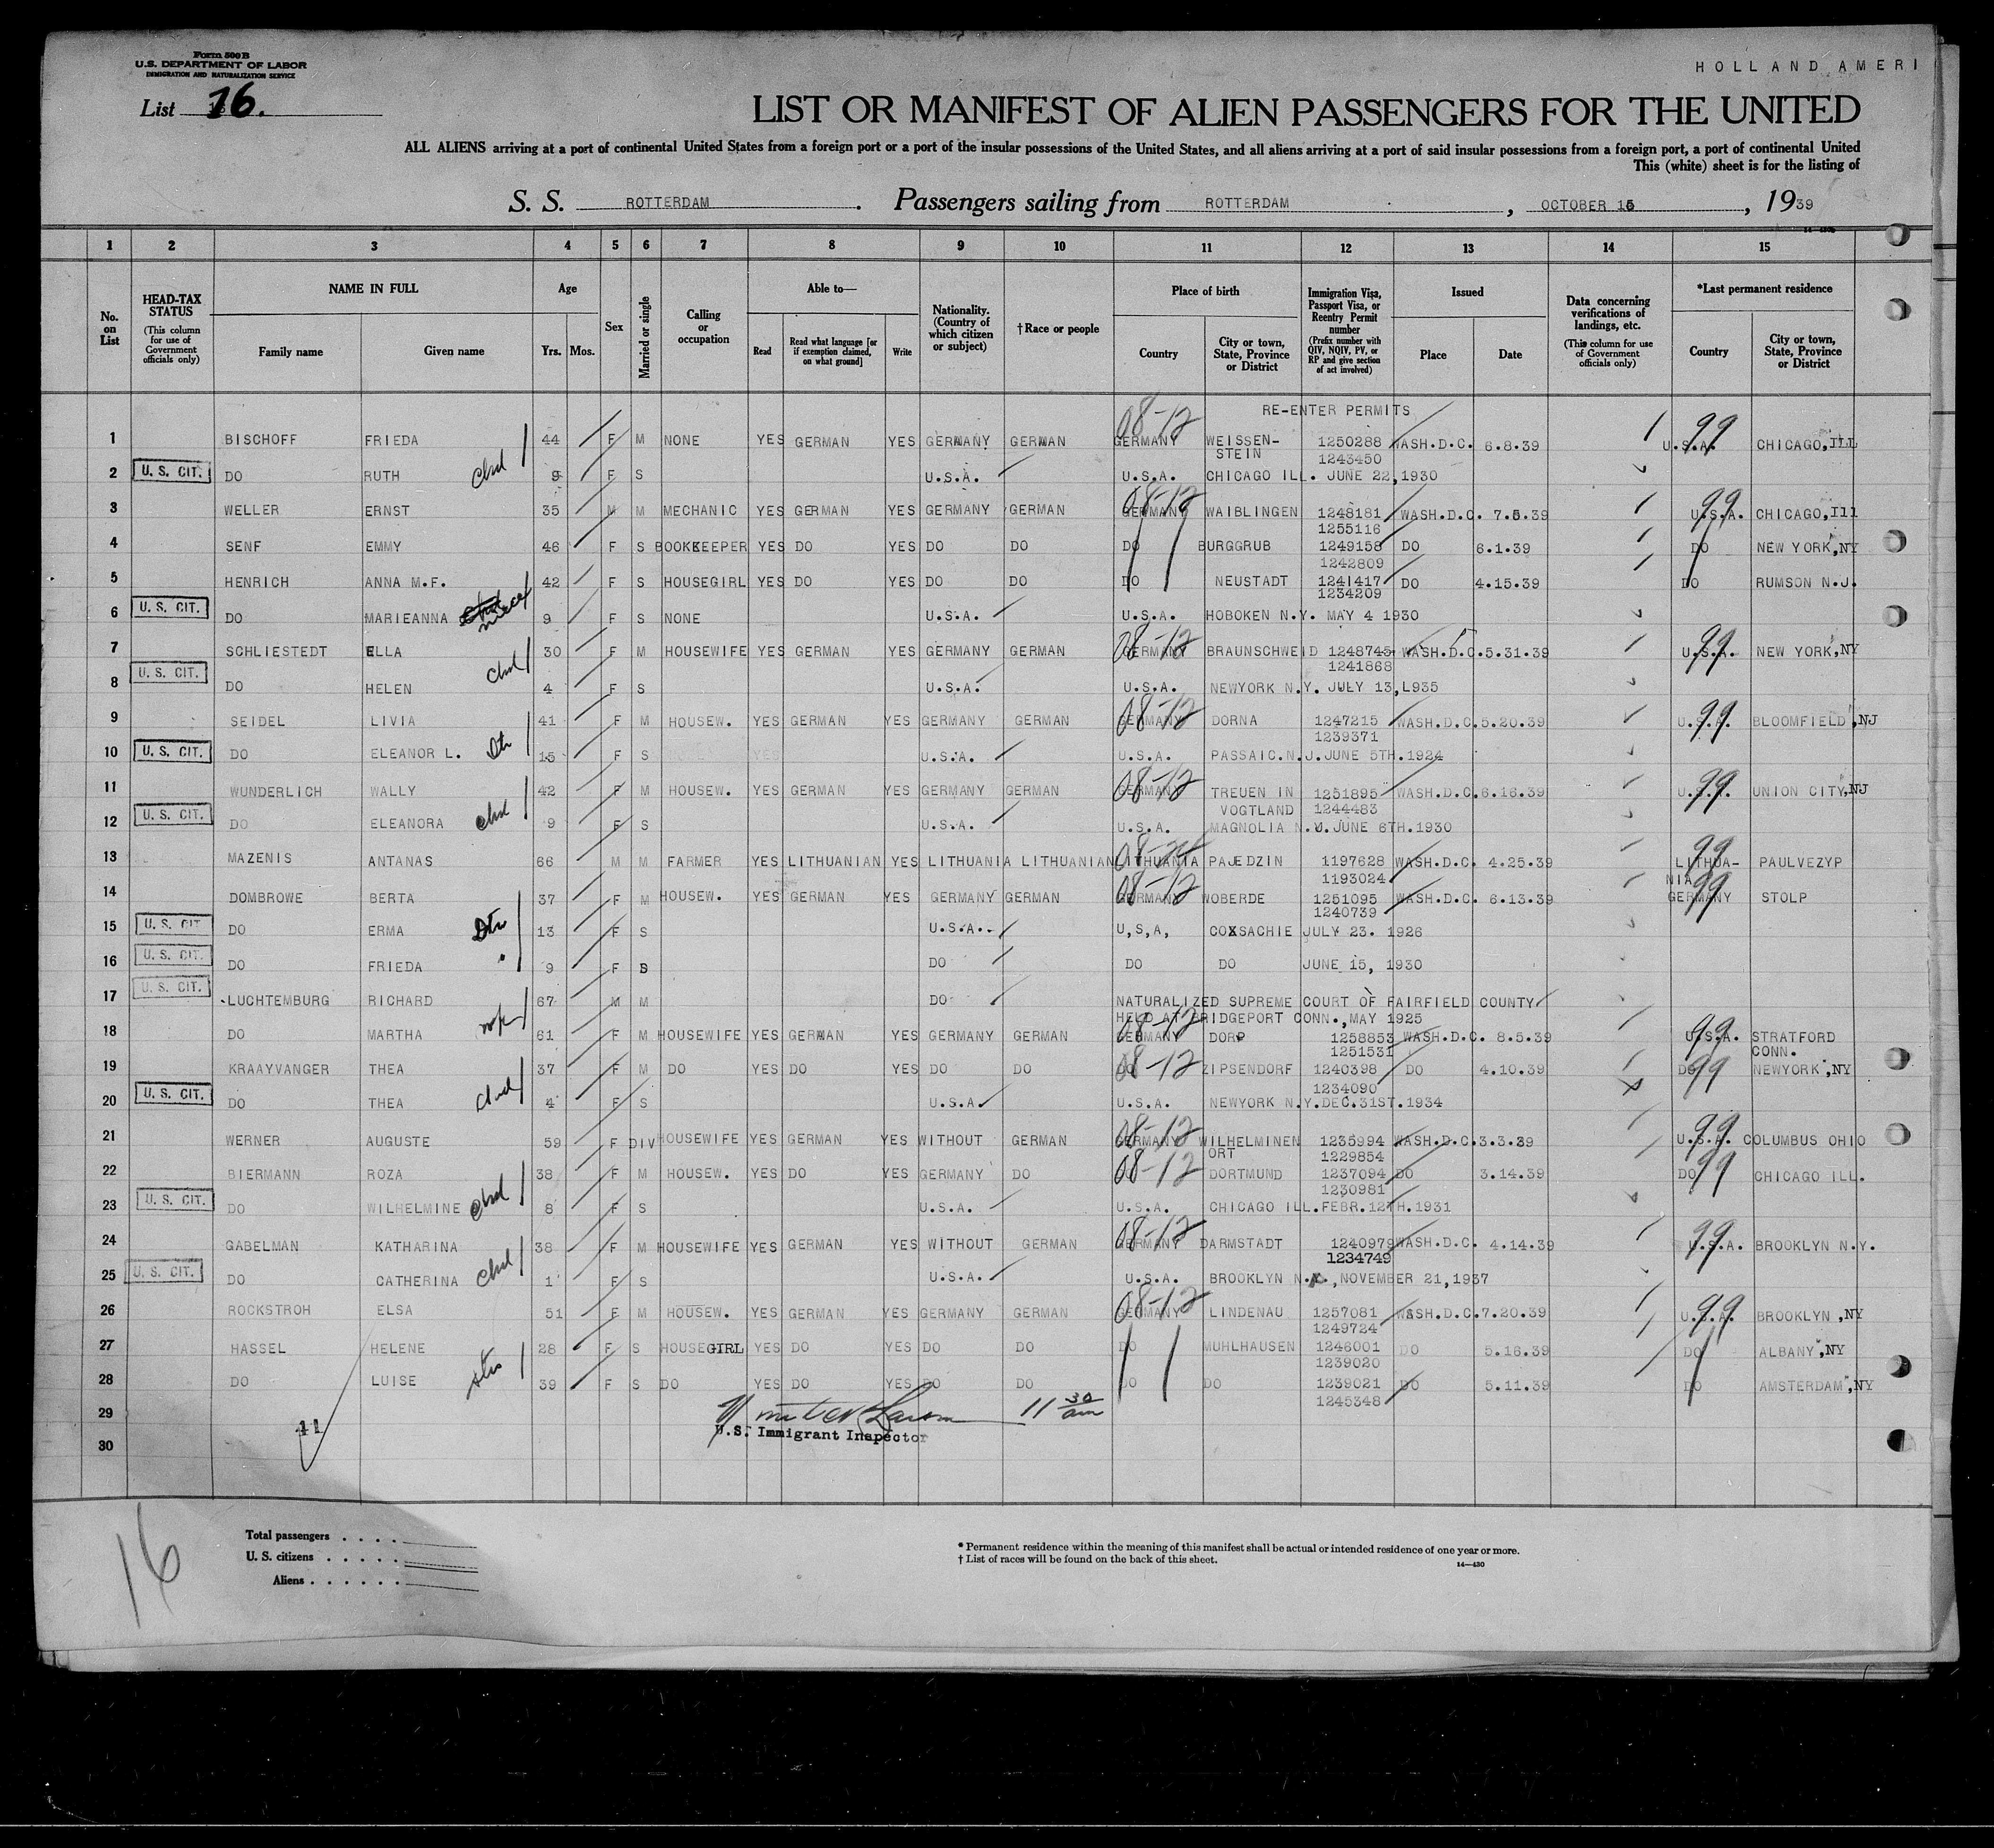 Form 500 B
U.S. DEPARTMENT OF LABOR
IMMIGRATION AND NATURALIZATION SERVICE
HOLLAND AMERI
List 16.
LIST OR MANIFEST OF ALIEN PASSENGERS FOR THE UNITED
ALL ALIENS arriving at a port of continental United States from a foreign port or a port of the insular possessions of the United States, and all aliens arriving at a port of said insular possessions from a foreign port, a port of continental United
This (white) sheet is for the listing of
S. S. ROTTERDAM. Passengers sailing from ROTTERDAM, OCTOBER 16, 1939
1 2 3 4 5 6 7 8 9 10 11 12 13 14 15
No. on List
HEAD-TAX STATUS (This column for use of Government officials only)
NAME IN FULL Family name Given name
Age Yrs. Mos.
Sex
Married or single
Calling or occupation
Able to— Read Read what language [or if exemption claimed, on what ground] Write
Nationality. (Country of which citizen or subject)
†Race or people
Place of birth Country City or town, State, Province or District
Immigration Visa, Passport Visa, or Reentry Permit number (Prefix number with QIV, NQIV, PV, or RP and give section of act involved)
Issued Place Date
Data concerning verifications of landings, etc. (This column for use of Government officials only)
*Last permanent residence Country City or town, State, Province or District
RE-ENTER PERMITS
1 BISCHOFF FRIEDA 44 F M NONE YES GERMAN YES GERMANY GERMAN 08-12 GERMANY WEISSEN-STEIN 1250288 1243450 WASH.D.C. 6.8.39 99 U.S.A. CHICAGO,ILL
2 U. S. CIT. DO RUTH chd 9 F S U.S.A. U.S.A. CHICAGO ILL. JUNE 22,1930
3 WELLER ERNST 35 M M MECHANIC YES GERMAN YES GERMANY GERMAN 08-12 GERMANY WAIBLINGEN 1248181 1255116 WASH.D.C. 7.5.39 99 U.S.A. CHICAGO,Ill
4 SENF EMMY 46 F S BOOKKEEPER YES DO YES DO DO DO BURGGRUB 1249158 1242809 DO 6.1.39 DO NEW YORK,NY
5 HENRICH ANNA M.F. 42 F S HOUSEGIRL YES DO YES DO DO DO NEUSTADT 1241417 1234209 DO 4.15.39 DO RUMSON N.J.
6 U. S. CIT. DO MARIEANNA niece 9 F S NONE U.S.A. U.S.A. HOBOKEN N.Y. MAY 4 1930
7 SCHLIESTEDT ELLA 30 F M HOUSEWIFE YES GERMAN YES GERMANY GERMAN 08-12 GERMANY BRAUNSCHWEID 1248745 1241868 WASH.D.C.5.31.39 99 U.S.A. NEW YORK,NY
8 U. S. CIT. DO HELEN chd 4 F S U.S.A. U.S.A. NEWYORK N.Y. JULY 13,L935
9 SEIDEL LIVIA 41 F M HOUSEW. YES GERMAN YES GERMANY GERMAN 08-12 GERMANY DORNA 1247215 1239371 WASH.D.C.5.20.39 99 U.S.A. BLOOMFIELD,NJ
10 U. S. CIT. DO ELEANOR L. Dtr 15 F S U.S.A. U.S.A. PASSAIC.N.J.JUNE 5TH.1924
11 WUNDERLICH WALLY 42 F M HOUSEW. YES GERMAN YES GERMANY GERMAN 08-12 GERMANY TREUEN IN VOGTLAND 1251895 1244483 WASH.D.C.6.16.39 99 U.S.A. UNION CITY,NJ
12 U. S. CIT. DO ELEANORA chd 9 F S U.S.A. U.S.A. MAGNOLIA N.J.JUNE 6TH.1930
13 MAZENIS ANTANAS 66 M M FARMER YES LITHUANIAN YES LITHUANIA LITHUANIAN LITHUANIA PAJEDZIN 1197628 1193024 WASH.D.C. 4.25.39 99 LITHUA-NIA PAULVEZYP
14 DOMBROWE BERTA 37 F M HOUSEW. YES GERMAN YES GERMANY GERMAN 08-12 GERMANY WOBERDE 1251095 1240739 WASH.D.C. 6.13.39 99 GERMANY STOLP
15 U. S. CIT DO ERMA Dtr 13 F S U.S.A. U,S,A, COXSACHIE JULY 23. 1926
16 U. S. CIT. DO FRIEDA " 9 F S DO DO DO JUNE 15, 1930
17 U. S. CIT. LUCHTEMBURG RICHARD 67 M M DO NATURALIZED SUPREME COURT OF FAIRFIELD COUNTY HELD AT BRIDGEPORT CONN.,MAY 1925
18 DO MARTHA wf 61 F M HOUSEWIFE YES GERMAN YES GERMANY GERMAN 08-12 GERMANY DORP 1258853 1251531 WASH.D.C. 8.5.39 99 U.S.A. STRATFORD CONN.
19 KRAAYVANGER THEA 37 F M DO YES DO YES DO DO 08-12 DO ZIPSENDORF 1240398 1234090 DO 4.10.39 99 DO NEWYORK,NY
20 U. S. CIT. DO THEA chd 4 F S U.S.A. U.S.A. NEWYORK N.Y.DEC.31ST.1934
21 WERNER AUGUSTE 59 F DIV HOUSEWIFE YES GERMAN YES WITHOUT GERMAN 08-12 GERMANY WILHELMINEN ORT 1235994 1229854 WASH.D.C.3.3.39 99 U.S.A. COLUMBUS OHIO
22 BIERMANN ROZA 38 F M HOUSEW. YES DO YES GERMANY DO 08-12 DORTMUND 1237094 1230981 DO 3.14.39 99 DO CHICAGO ILL.
23 U. S. CIT. DO WILHELMINE chd 8 F S U.S.A. U.S.A. CHICAGO ILL.FEBR.12TH.1931
24 GABELMAN KATHARINA 38 F M HOUSEWIFE YES GERMAN YES WITHOUT GERMAN 08-12 GERMANY DARMSTADT 1240979 1234749 WASH.D.C. 4.14.39 99 U.S.A. BROOKLYN N.Y.
25 U. S. CIT. DO CATHERINA chd 1 F S U.S.A. U.S.A. BROOKLYN N.Y.,NOVEMBER 21,1937
26 ROCKSTROH ELSA 51 F M HOUSEW. YES GERMAN YES GERMANY GERMAN 08-12 GERMANY LINDENAU 1257081 1249724 WASH.D.C.7.20.39 99 U.S.A. BROOKLYN,NY
27 HASSEL HELENE 28 F S HOUSEGIRL YES DO YES DO DO DO MUHLHAUSEN 1246001 1239020 DO 5.16.39 DO ALBANY,NY
28 DO LUISE 39 F S DO YES DO YES DO DO DO DO 1239021 1245348 DO 5.11.39 DO AMSTERDAM,NY
29 11 30 am
30 11 U.S. Immigrant Inspector
16
Total passengers
U. S. citizens
Aliens
* Permanent residence within the meaning of this manifest shall be actual or intended residence of one year or more.
† List of races will be found on the back of this sheet.
14—430